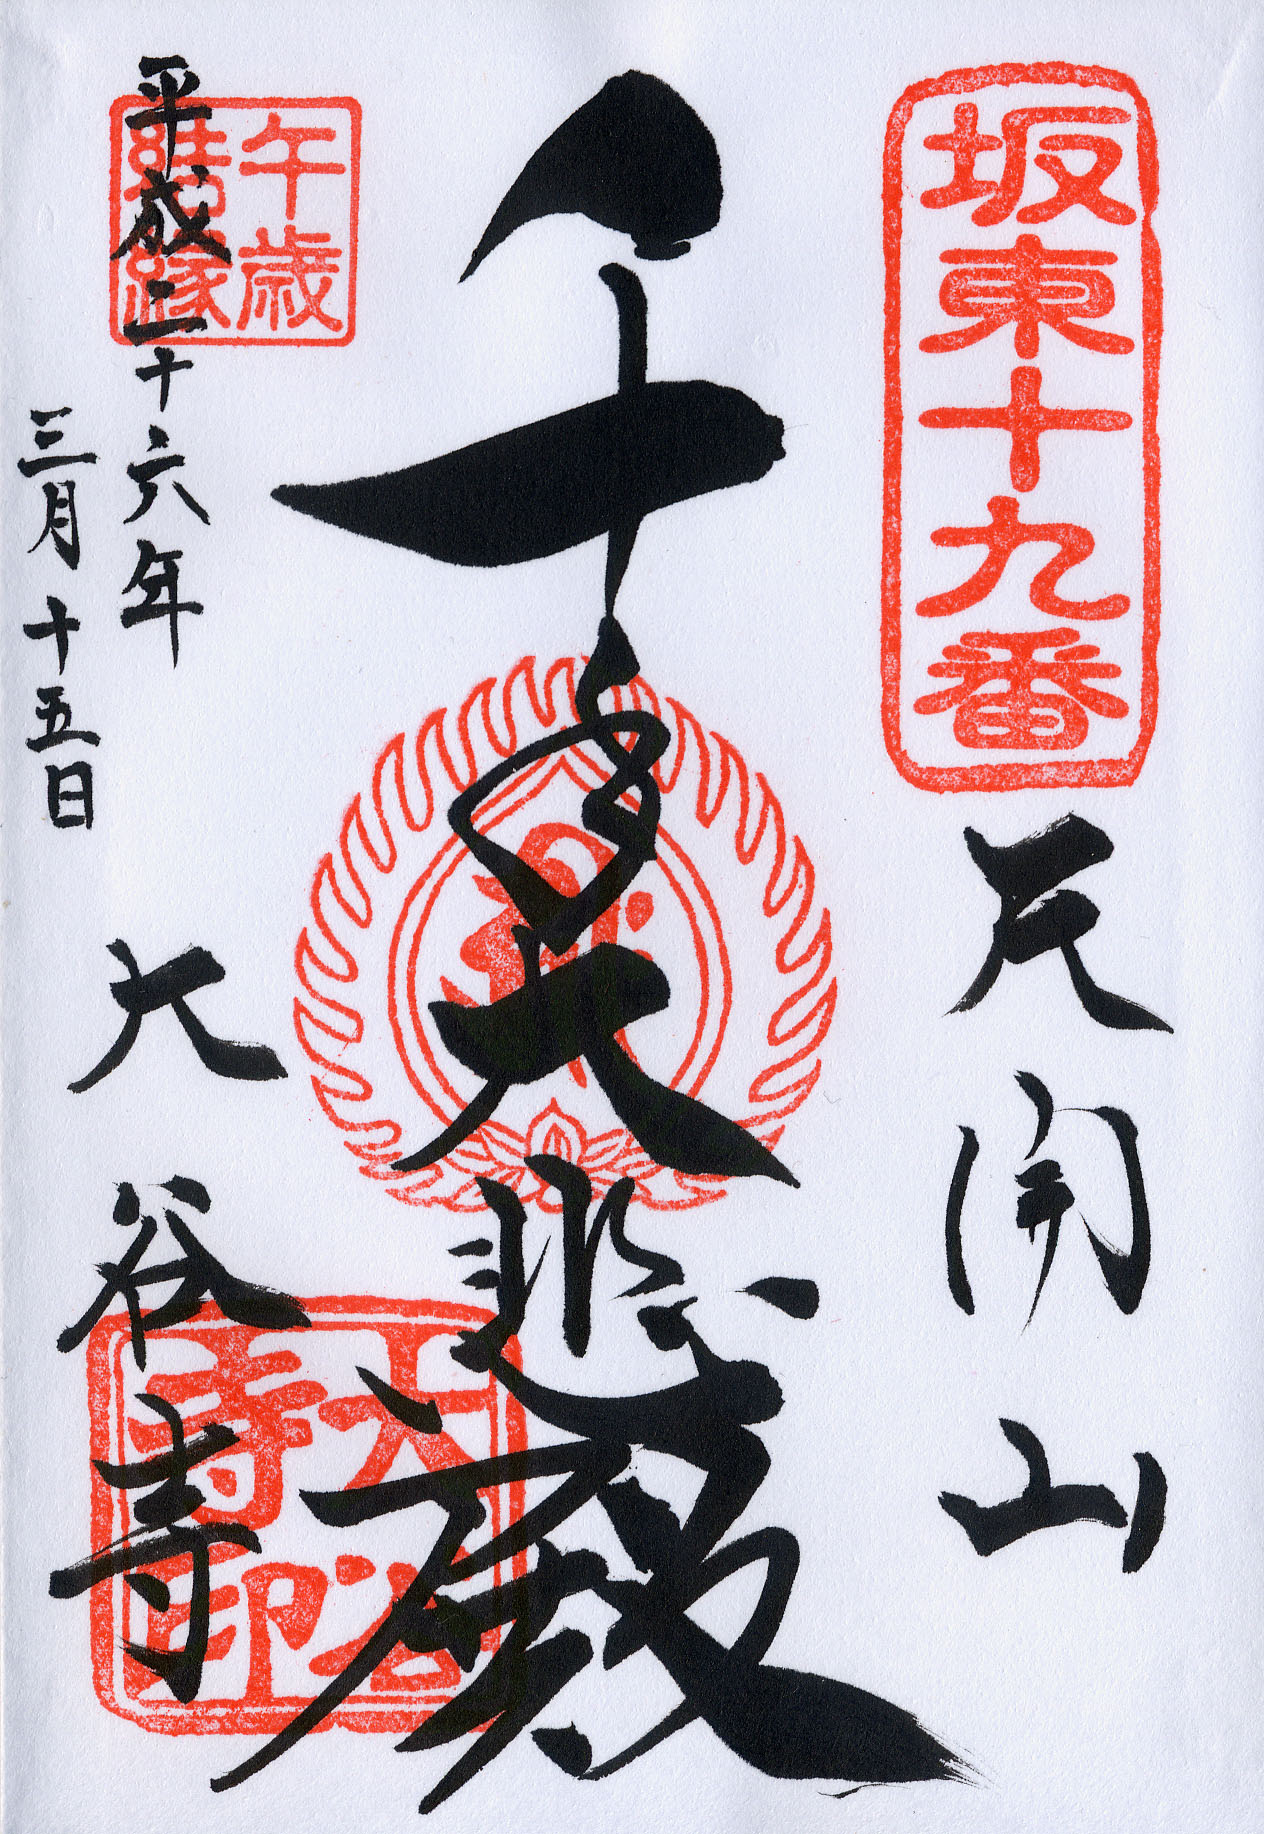 坂東十九番
天開山
千手大悲殿
午歳
結縁
平成二十六年
三月十五日
大谷寺
大谷
寺印